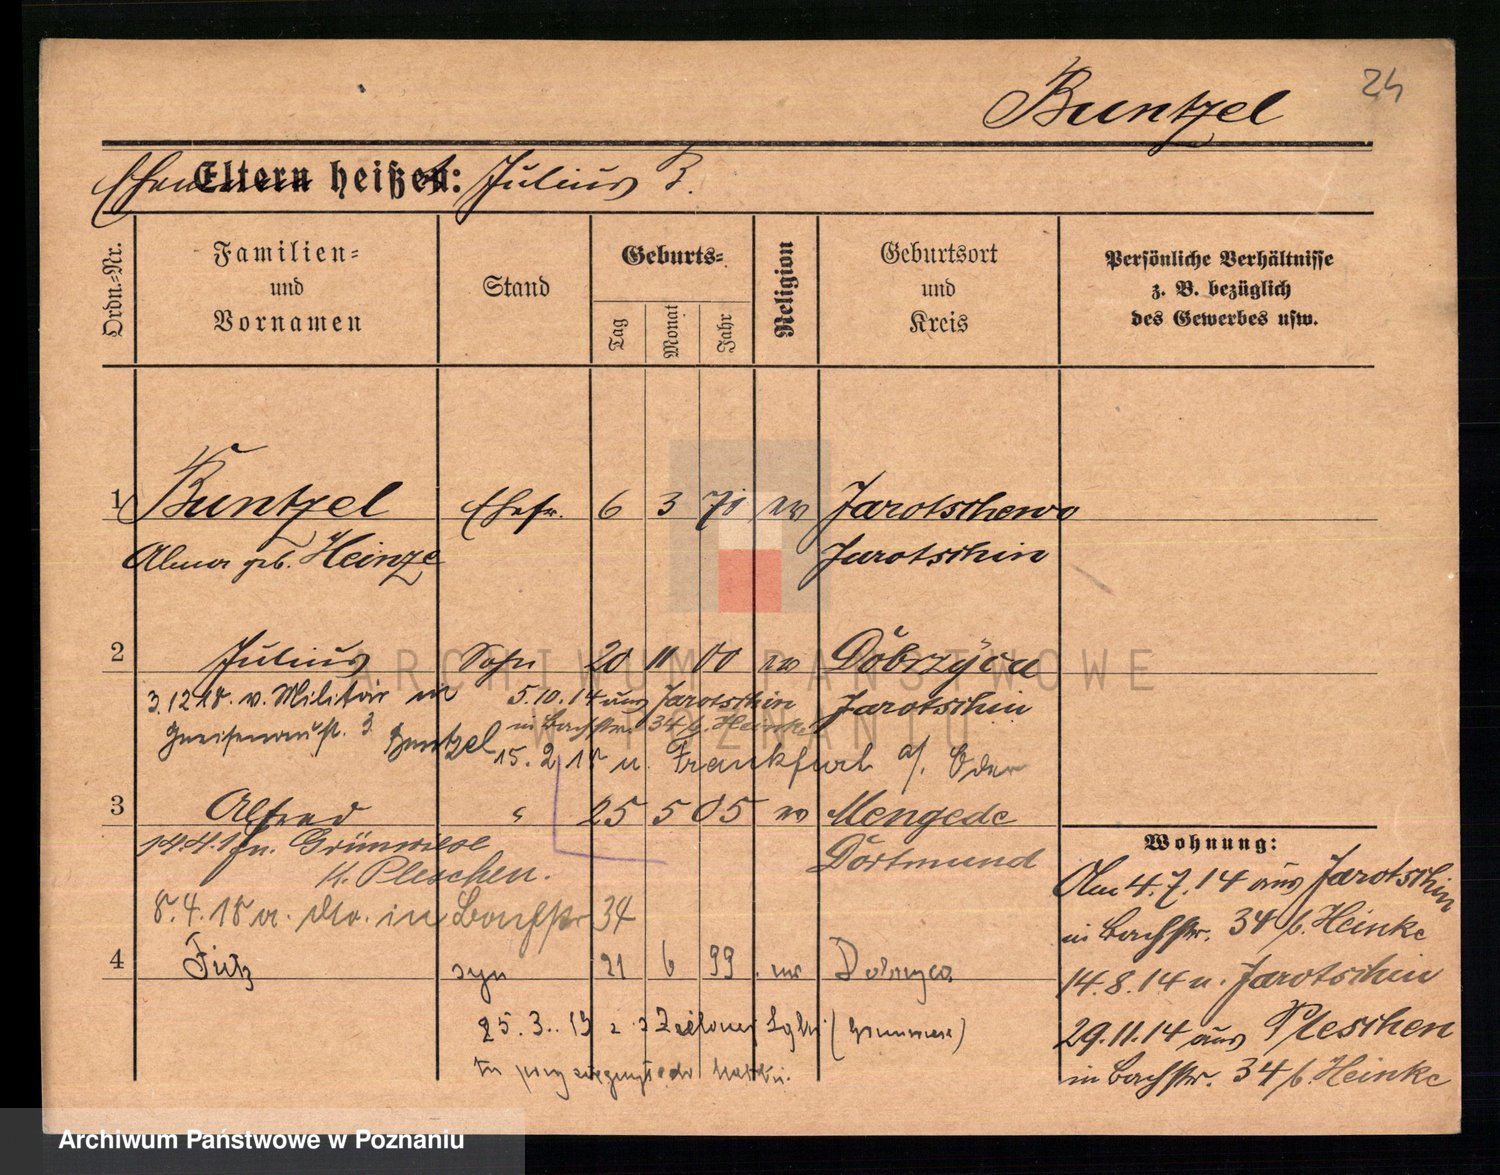 24
Buntzel
Eltern heißen: Julius B.
Ordn.-Nr.
Familien-
und
Vornamen
Stand
Geburts-
Tag
Monat
Jahr
Religion
Geburtsort
und
Kreis
Persönliche Verhältnisse
z. B. bezüglich
des Gewerbes usw.
1 Buntzel Ehefr. 6 3 70 ev Jarotschewo
Alma geb. Heinze Jarotschin
2 Julius Sohn 20 11 00 ev Dobrzyca
3.12.18. v. Militär in 5.10.14 aus Jarotschin Jarotschin
Gneisenaustr. 3 Buntzel in Bachstr. 34 b. Heinke
15.2.18 n. Frankfurt a/. Oder
3 Alfred " 25 5 05 ev Mengede
14.4.17 n. Grünwiese Dortmund
K. Pleschen.
8.4.18 a. in Bachstr 34
4 Fritz syn 21 6 99 ew Dobrzyca
25.3.19 z
Wohnung:
Am 4.7.14 aus Jarotschin
in Bachstr. 34 b. Heinke
14.8.14 n. Jarotschin
29.11.14 aus Pleschen
in Bachstr. 34 b. Heinke
ARCHIWUM PAŃSTWOWE
W POZNANIU
Archiwum Państwowe w Poznaniu